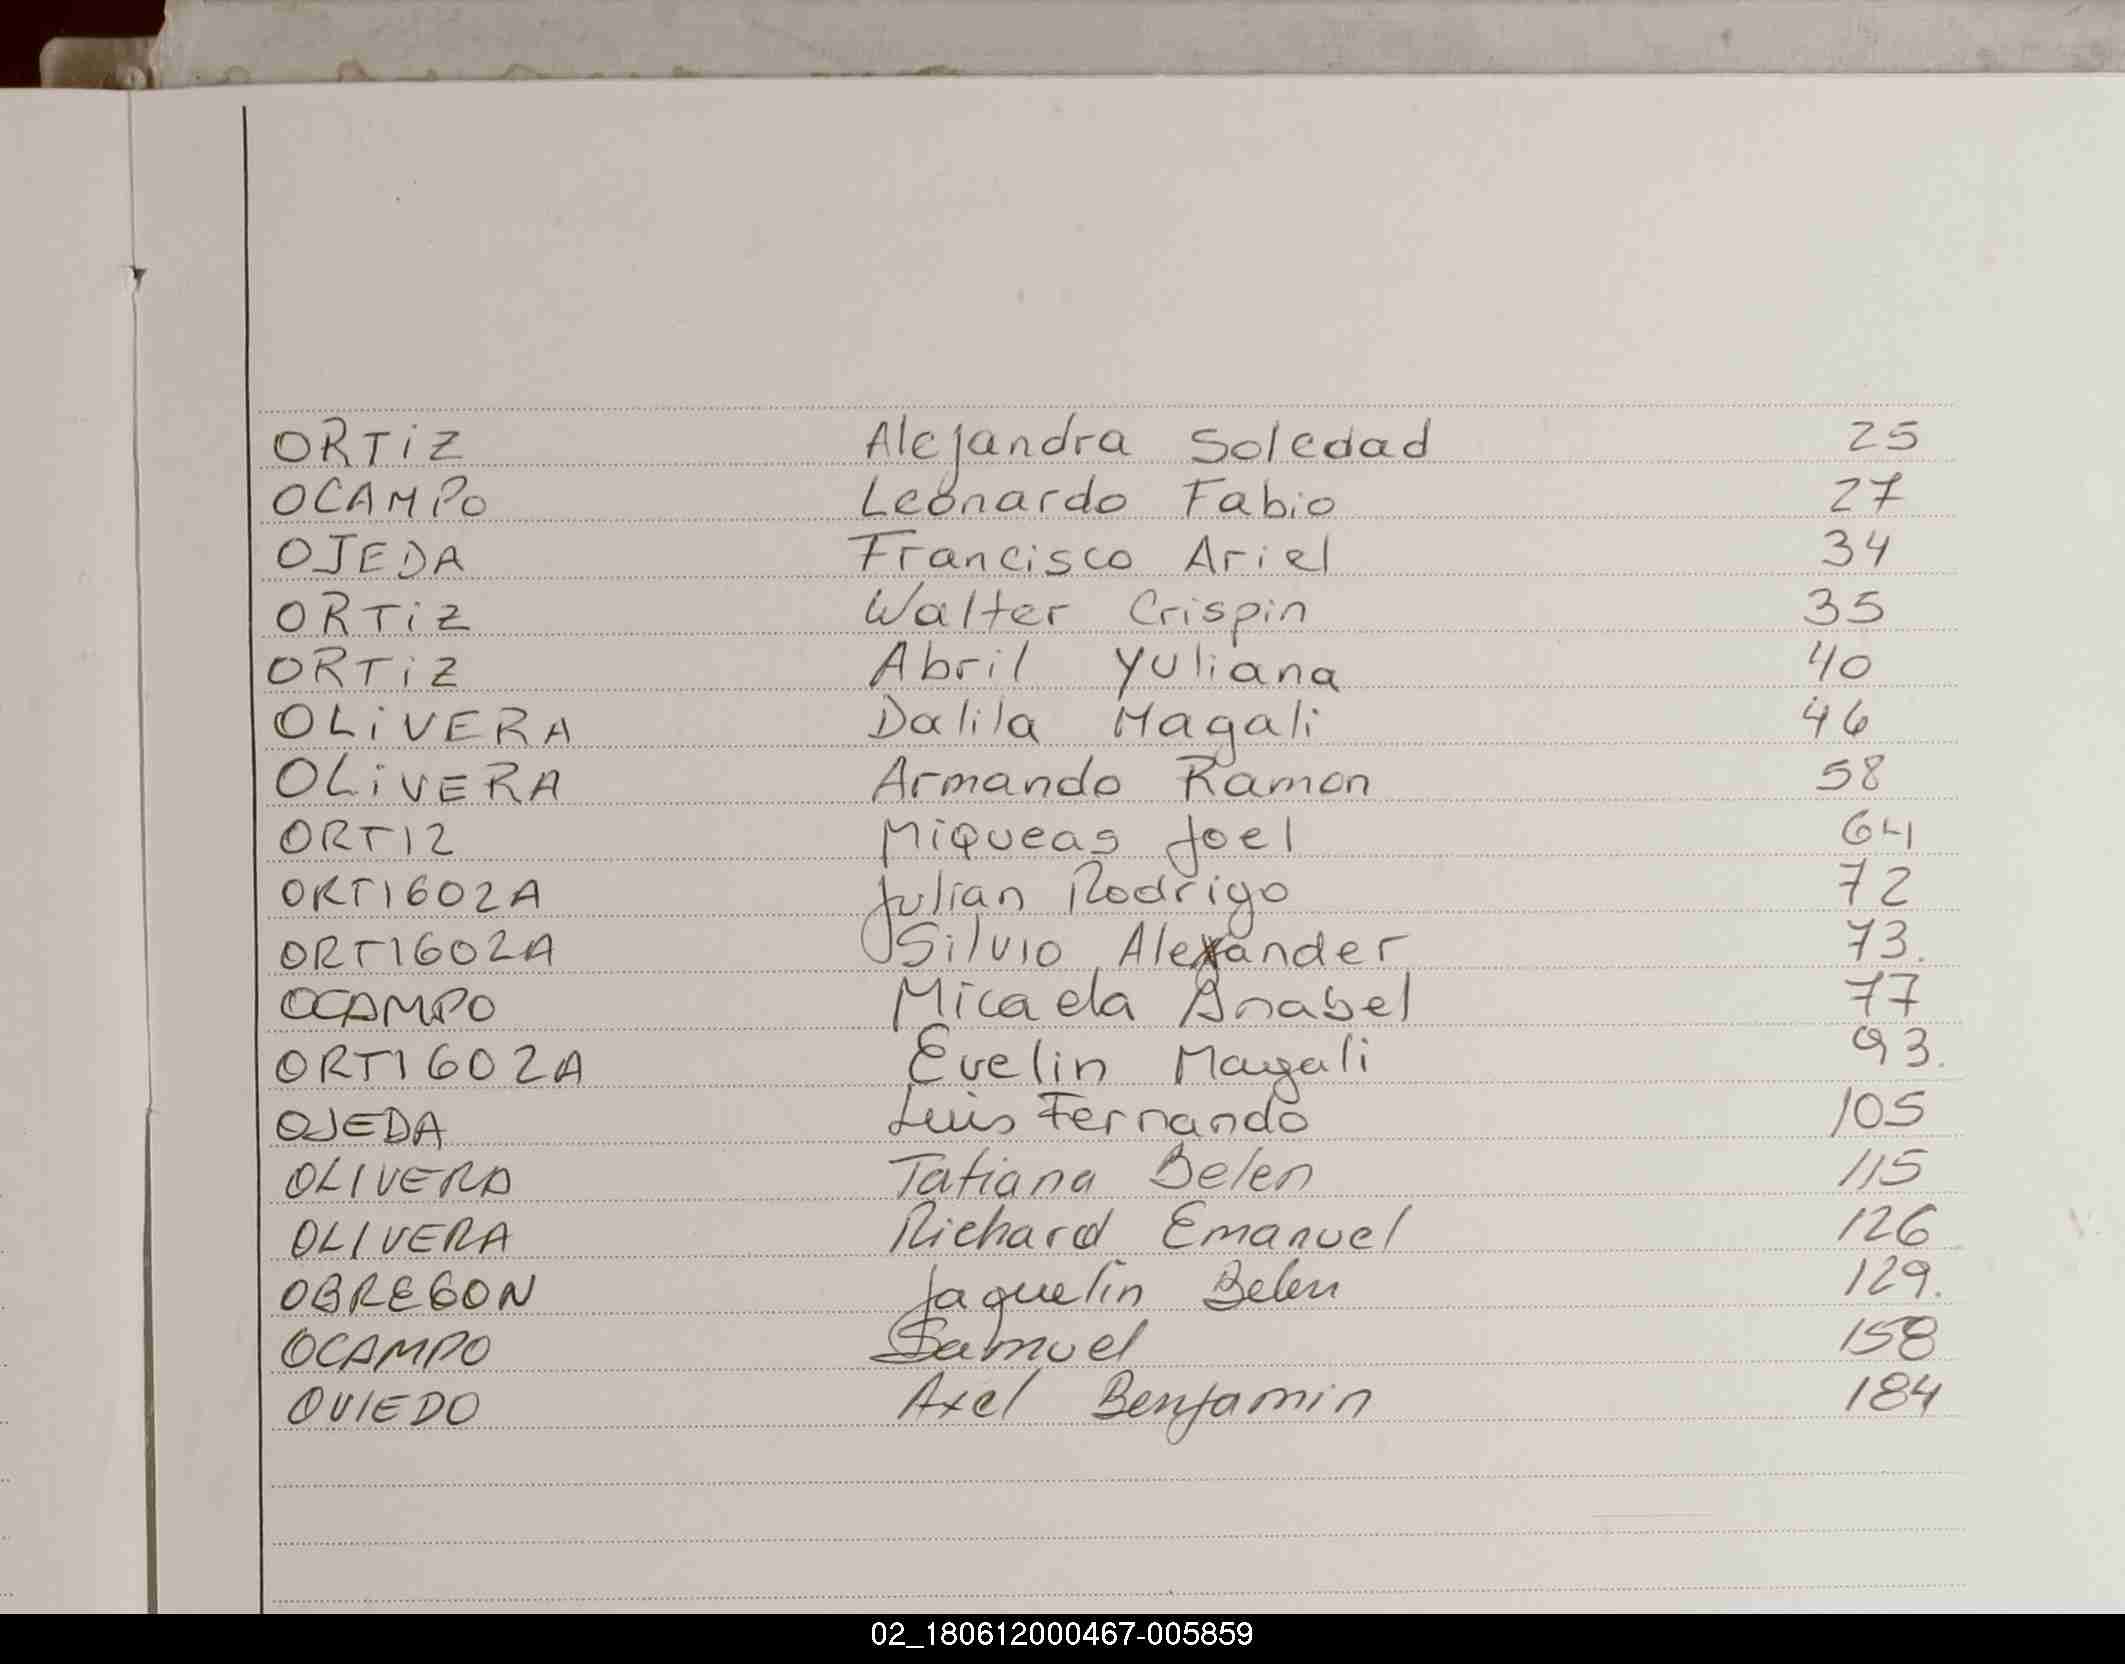 ORTiZ Alejandra Soledad 25
OCAMPO Leonardo Fabio 27
OJEDA Francisco Ariel 34
ORTiZ Walter Crispin 35
ORTiZ Abril Yuliana 40
OLiVERA Dalila Magali 46
OLiVERA Armando Ramon 58
ORTIZ Miqueas Joel 64
ORTIGOZA Julian Rodrigo 72
ORTIGOZA Silvio Alexander 73.
OCAMPO Micaela Anabel 77
ORTIGOZA Evelin Magali 93.
OJEDA Luis Fernando 105
OLIVERA Tatiana Belen 115
OLIVERA Richard Emanuel 126
OBREGON Jaquelin Belen 129.
OCAMPO Samuel 158
OVIEDO Axel Benjamin 184
02_180612000467-005859